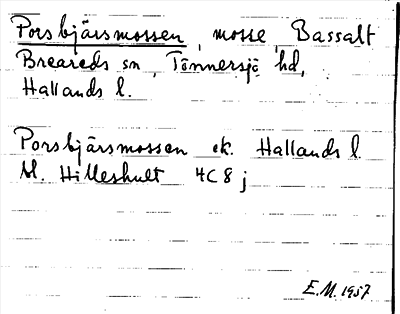 Porsbjärsmossen, mosse, Bassalt
Breareds sn, Tönnersjö hd,
Hallands l.
Porsbjärsmossen ek. Hallands l.
M. Hilleshult 4C8j
E.M. 1957